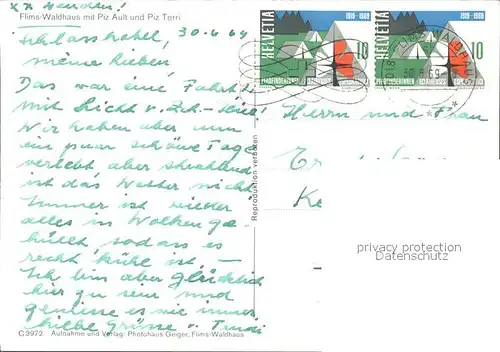 xx wenden!
Flims-Waldhaus mit Piz Ault und Piz Terri
Schlosshotel, 30.6.69
meine lieben
Das war eine Fahrt
mit Licht v.
Wir haben aber nun
ein paar schöne Tage
verlebt, aber strahlend
ist das Wetter nicht
Immer ist wieder
alles in Wolken ge-
hüllt sodass es
recht kühl ist –
Ich bin aber glücklich
hier zu sein und
geniesse es wie immer
Liebe Grüsse v. Trudi
C 3972 Aufnahme und Verlag: Photohaus Geiger, Flims-Waldhaus
Reproduktion verboten
HELVETIA 1919-1969
10
PFADFINDERINNEN
HELVETIA 1919-1969
10
PFADFINDERINNEN
WALDHAUS
Herrn und Frau
privacy protection
Datenschutz